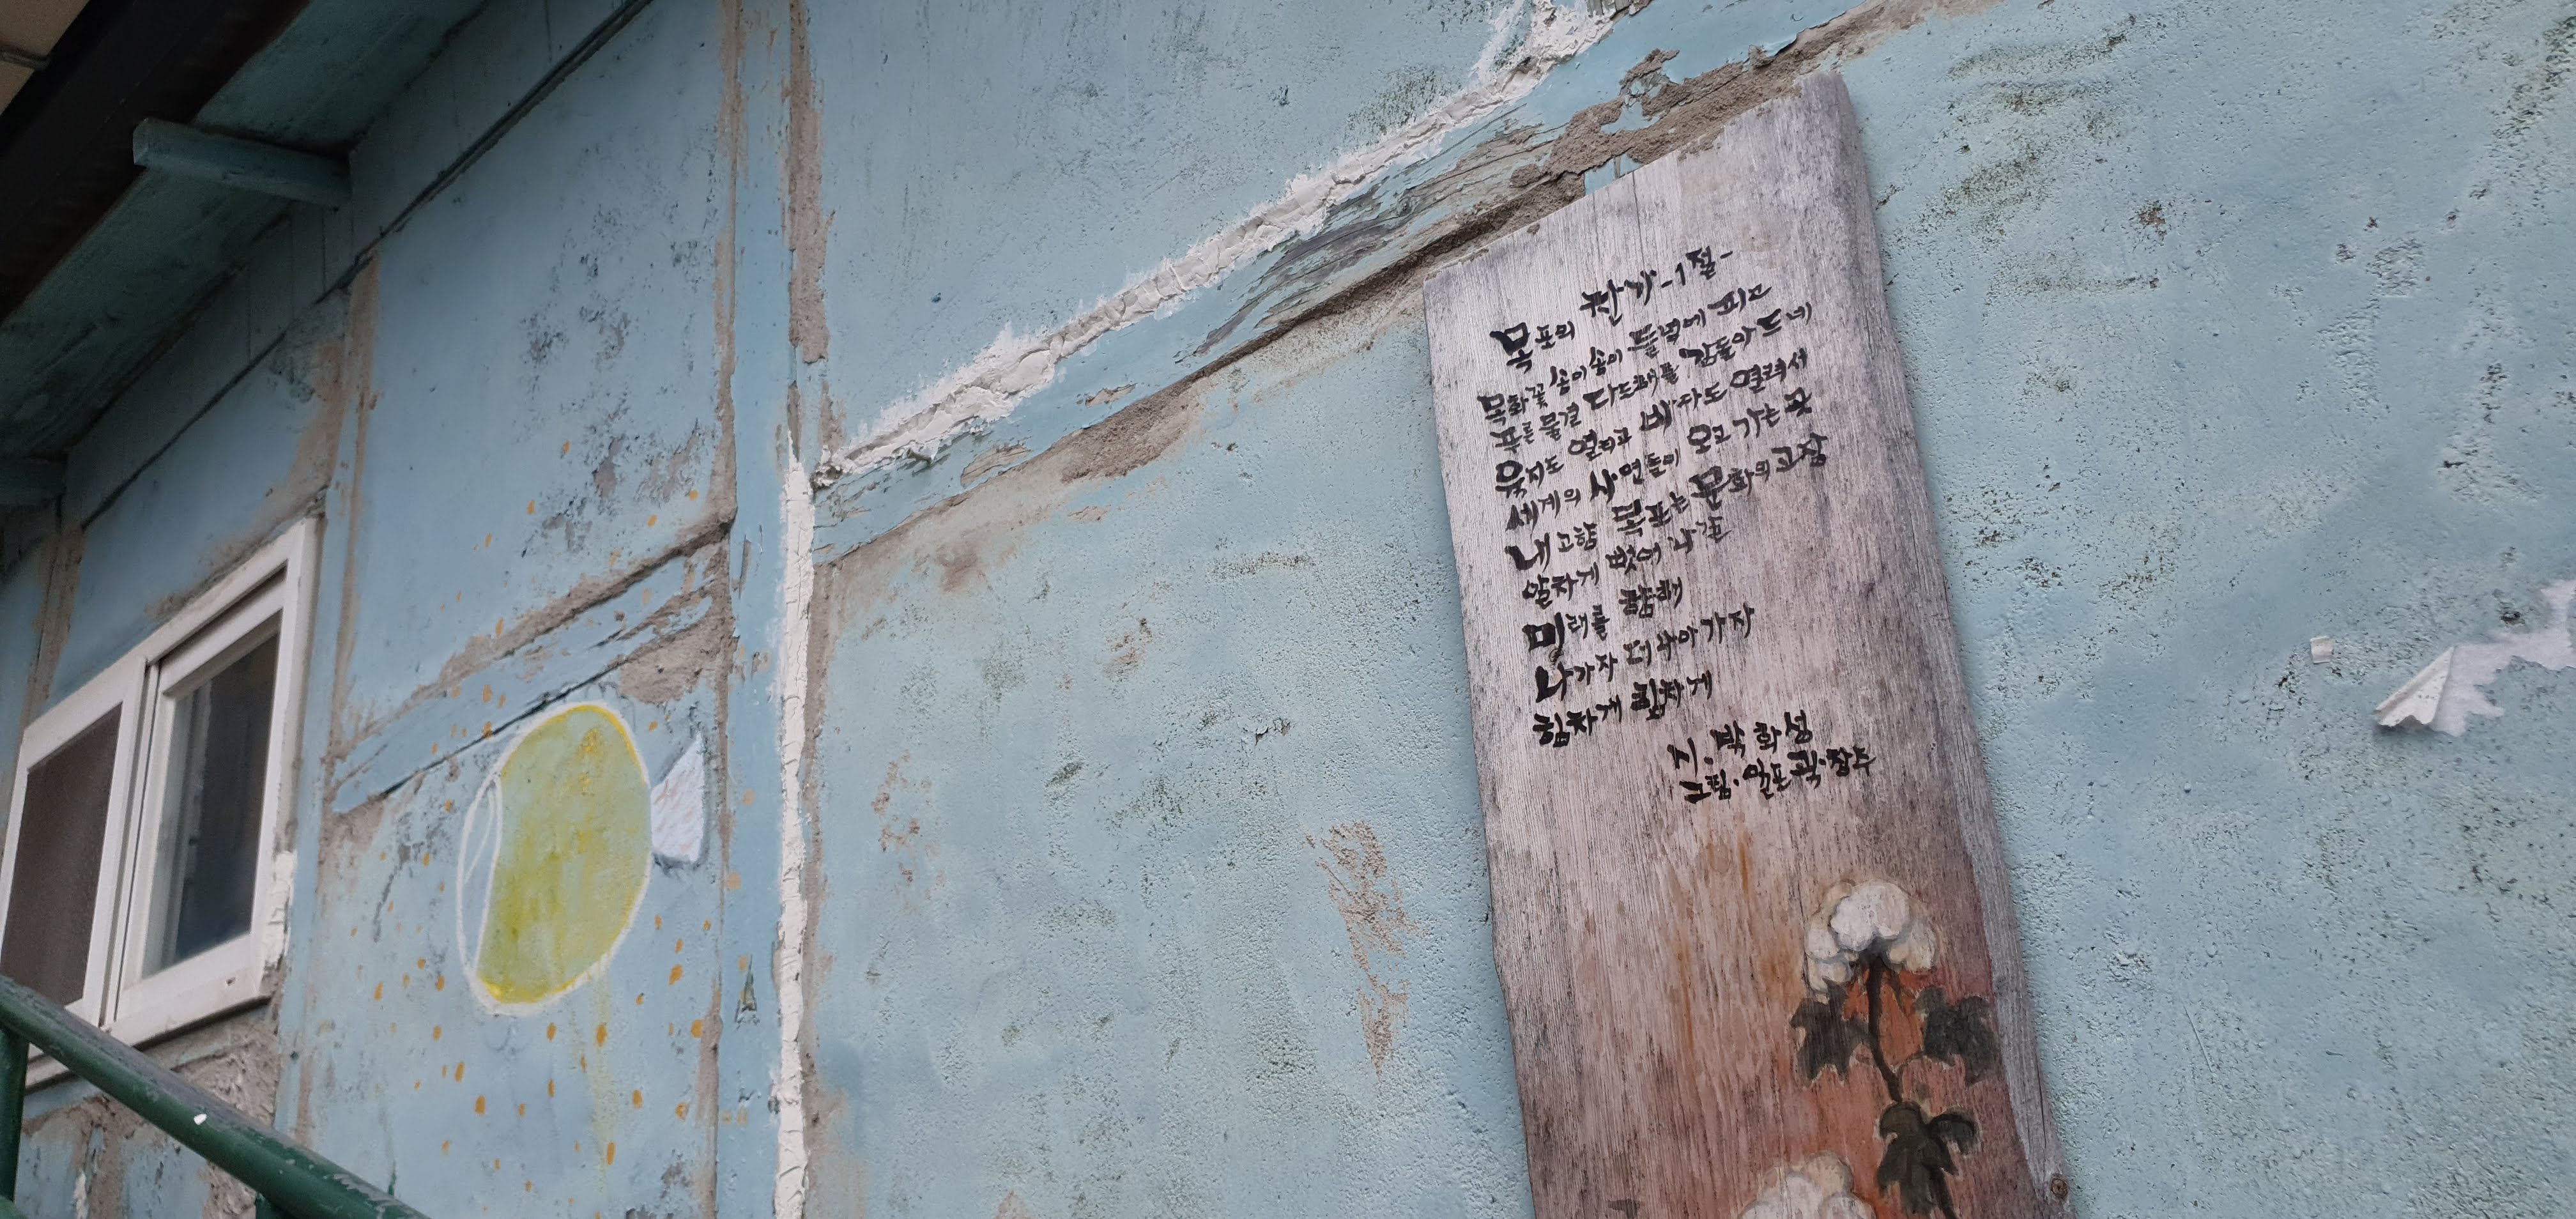 목포의 찬가 -1절-
목화꽃 송이송이 들녘에 피고
푸른물결 다도해를 감돌아 드네
육지도 열리고 바다도 열려서
세계의 사연들이 오고가는 곳
내 고향 목포는 문화의 고장
알차게 벋어 나갈
미래를 향해
나가자 더 나아가자
힘차게 힘차게
시. 박화성
그림. 일포 곽·창주